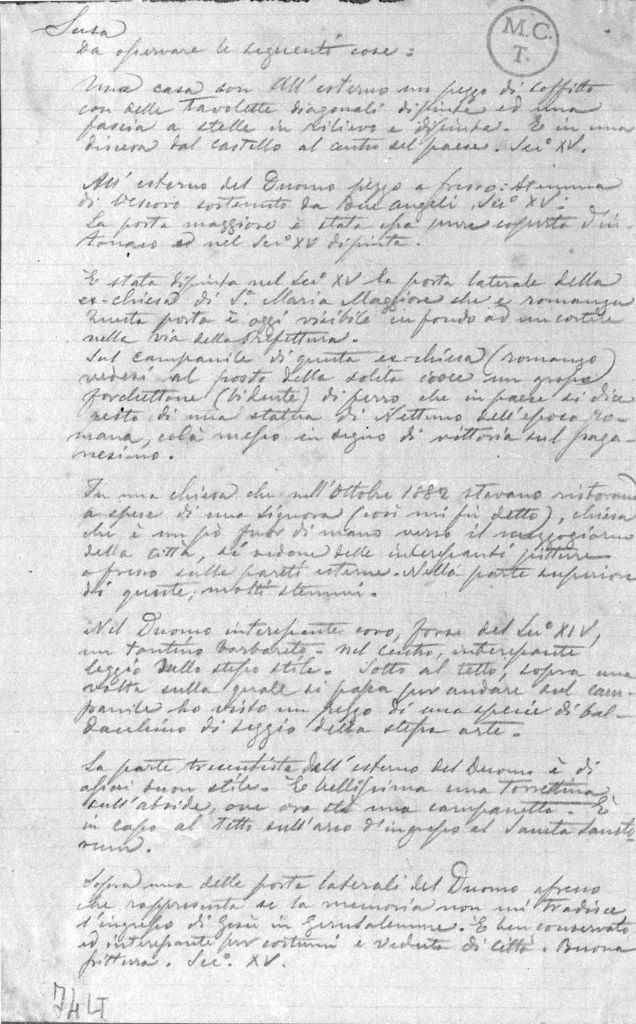 Susa
M.C.
T.
da osservare le seguenti cose =
Una casa con all'esterno un pezzo di soffitto
con delle tavolette diagonali dipinte ed una
fascia a stelle in rilievo e dipinta. È in una
discesa dal castello al centro del paese. Sec° XV.
All'esterno del Duomo pezzo a fresco: Stemma
di Vescovo sostenuto da due angeli. Sec° XV.
La porta maggiore è stata pure coperta d'in-
tonaco ed nel Sec° XV dipinta.
È stata dipinta nel Sec° XV la porta laterale della
ex-chiesa di S. Maria Maggiore che è romanza
Questa porta è oggi visibile in fondo ad un cortile
nella via della Prefettura.
Sul campanile di questa ex-chiesa (romanzo)
vedesi al posto della solita croce un grosso
forchettone (tridente) di ferro, che in paese si dice
resto di una statua di Nettuno dell'epoca ro-
mana, colà messo in segno di vittoria sul paga-
nesimo.
In una chiesa che nell'Ottobre 1882 stavano ristorando
a spese di una signora (così mi fu detto), chiesa
che è un pò fuor di mano verso il mezzogiorno
della città, si vedono delle interessanti pitture
a fresco sulle pareti esterne. Nella parte superiore
di queste, molti stemmi.
Nel Duomo interessante coro, forse del Sec° XIV,
un tantino barbareto. Nel centro, interessante
leggio dello stesso stile. Sotto al tetto, sopra una
volta sulla quale si passa per andare sul cam-
panile ho visto un pezzo di una specie di bal-
dacchino di seggio della stessa arte.
La parte trecentista dell'esterno del Duomo è di
assai buon stile. È bellissima una torrettina
sull'abside, ove ora sta una campanetta. È
in capo al tetto sull'arco d'ingresso al Sancta Sancto-
rum.
Sopra una delle porte laterali del Duomo afresco
che rappresenta se la memoria non mi tradisce
l'ingresso di Gesù in Gerusalemme. È ben conservato
ed interessante per costumi e veduta di città. Buona
pittura. Sec°. XV.